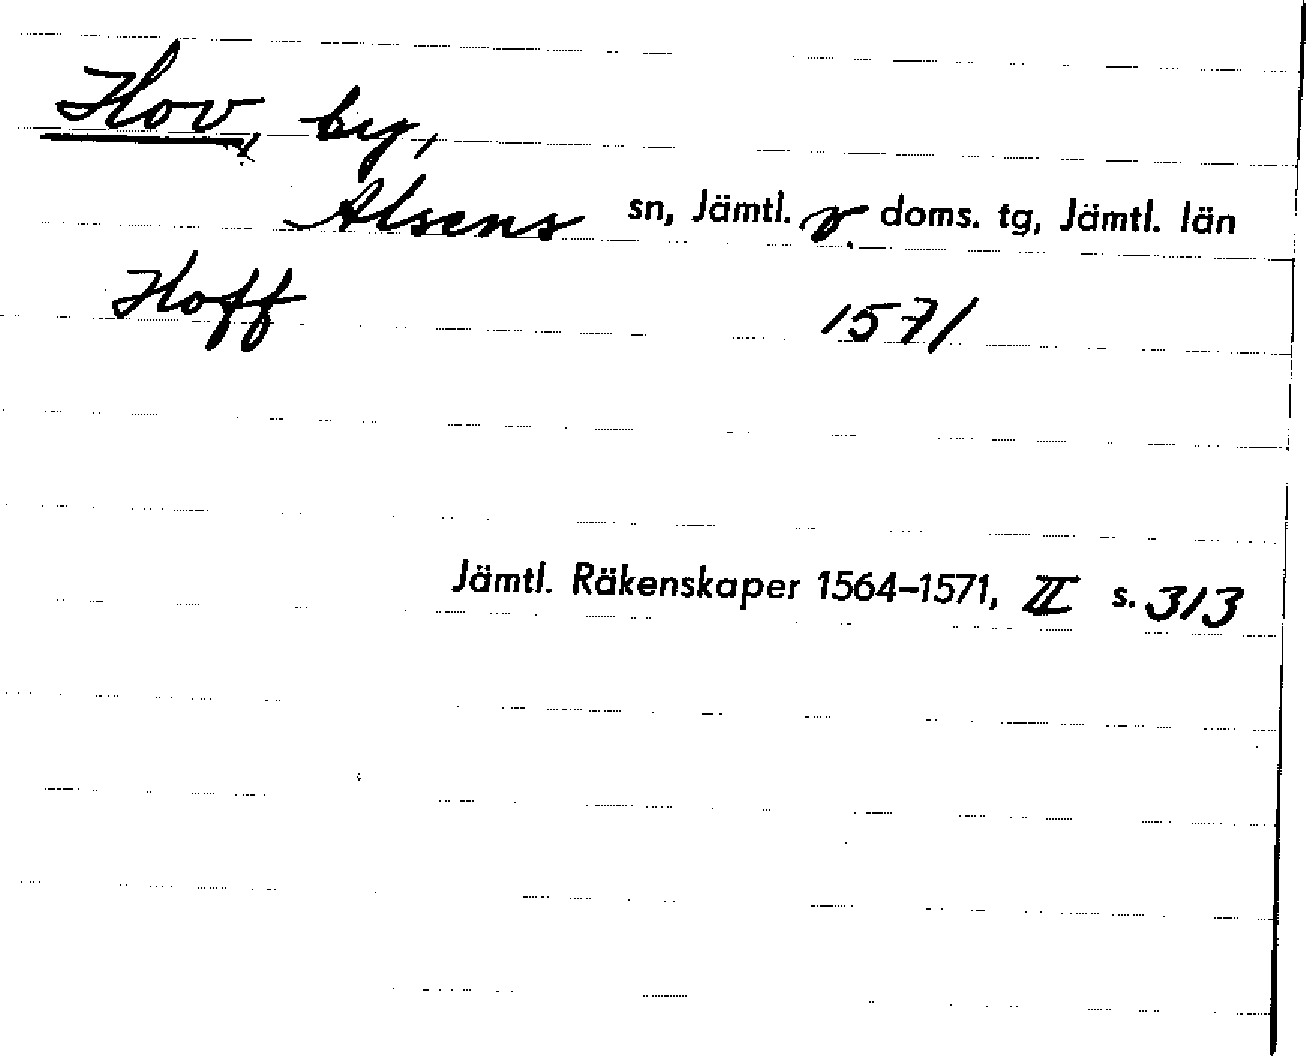 Hov, by,
Alsens sn, Jämtl. v. doms. tg, Jämtl. län
Hoff 1571
Jämtl. Räkenskaper 1564–1571, II s. 313